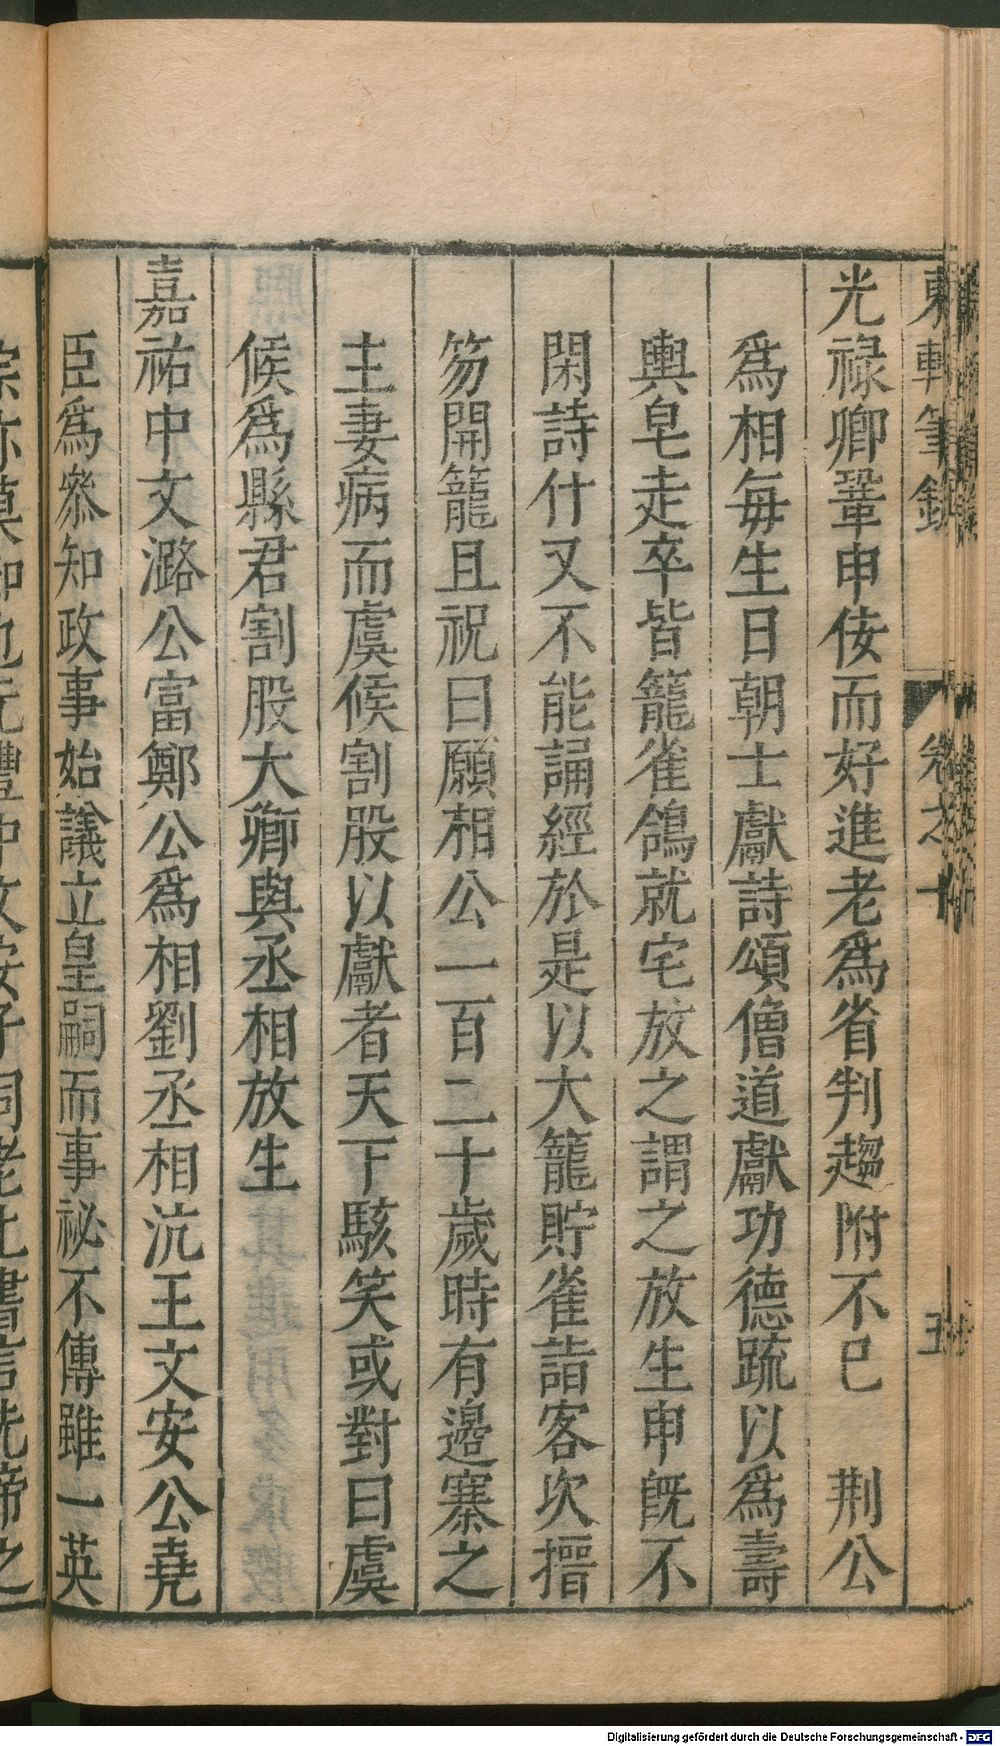 東軒筆錄 卷之十 五
光禄卿鞏申佞而好進老爲省判趨附不已 荆公
爲相每生日朝士獻詩頌僧道獻功德䟽以爲壽
輿皂走卒皆籠雀鴿就宅放之謂之放生申既不
閑詩什又不能誦經於是以大籠貯雀詣客次搢
笏開籠且祝曰願相公一百二十歲時有邊寨之
主妻病而虞候割股以獻者天下駭笑或對曰虞
候爲縣君割股大卿與丞相放生
嘉祐中文潞公富鄭公爲相劉丞相沆王文安公堯
臣爲叅知政事始議立皇嗣而事祕不傳雖一英
Digitalisierung gefördert durch die Deutsche Forschungsgemeinschaft - DFG